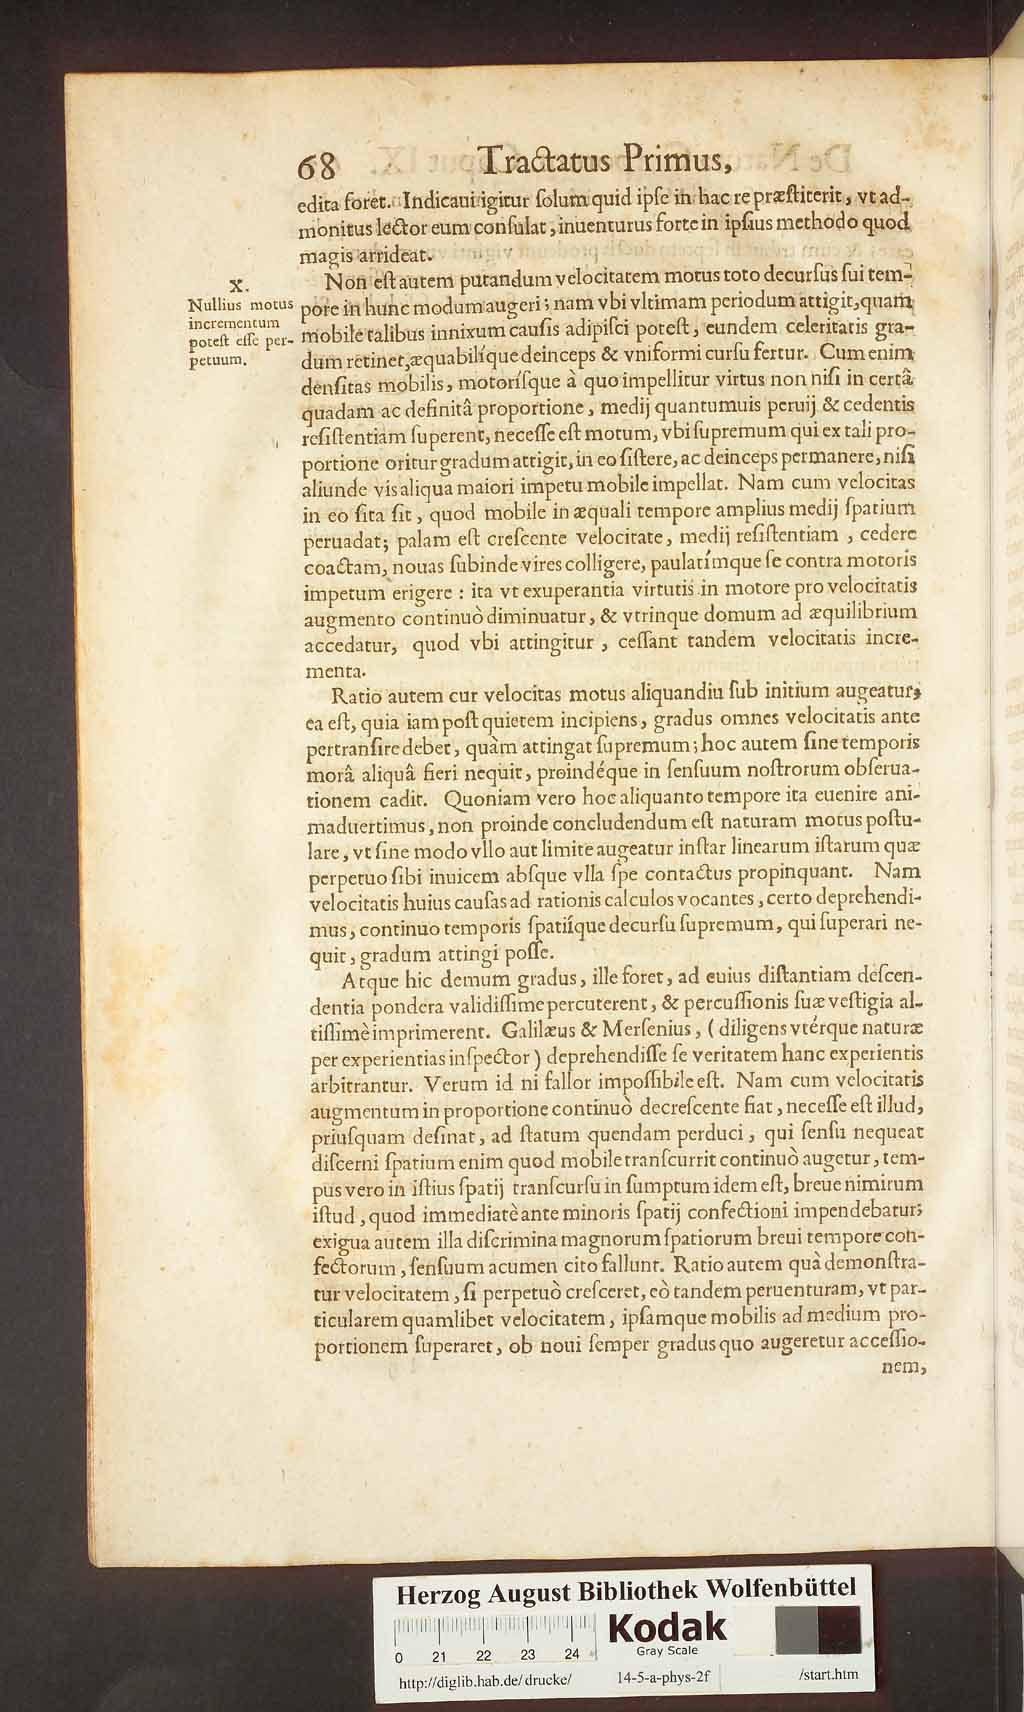 68 Tractatus Primus,
edita foret. Indicaui igitur ſolum quid ipſe in hac re præſtiterit, vt ad-
monitus lector eum conſulat, inuenturus forte in ipſius methodo quod
magis arrideat.
X.
Nullius motus
incrementum
poteſt eſſe per-
petuum.
Non eſt autem putandum velocitatem motus toto decurſus ſui tem-
pore in hunc modum augeri; nam vbi vltimam periodum attigit, quam
mobile talibus innixum cauſis adipiſci poteſt, eundem celeritatis gra-
dum retinet, æquabilíque deinceps & vniformi curſu fertur. Cum enim
denſitas mobilis, motoríſque à quo impellitur virtus non niſi in certâ
quadam ac definitâ proportione, medij quantumuis peruij & cedentis
reſiſtentiam ſuperent, neceſſe eſt motum, vbi ſupremum qui ex tali pro-
portione oritur gradum attigit, in eo ſiſtere, ac deinceps permanere, niſi
aliunde vis aliqua maiori impetu mobile impellat. Nam cum velocitas
in eo ſita ſit, quod mobile in æquali tempore amplius medij ſpatium
peruadat; palam eſt creſcente velocitate, medij reſiſtentiam, cedere
coactam, nouas ſubinde vires colligere, paulatímque ſe contra motoris
impetum erigere: ita vt exuperantia virtutis in motore pro velocitatis
augmento continuò diminuatur, & vtrinque domum ad æquilibrium
accedatur, quod vbi attingitur, ceſſant tandem velocitatis incre-
menta.
Ratio autem cur velocitas motus aliquandiu ſub initium augeatur,
ea eſt, quia iam poſt quietem incipiens, gradus omnes velocitatis ante
pertranſire debet, quàm attingat ſupremum; hoc autem ſine temporis
morâ aliquâ fieri nequit, proindéque in ſenſuum noſtrorum obſerua-
tionem cadit. Quoniam vero hoc aliquanto tempore ita euenire ani-
maduertimus, non proinde concludendum eſt naturam motus poſtu-
lare, vt ſine modo vllo aut limite augeatur inſtar linearum iſtarum quæ
perpetuo ſibi inuicem abſque vlla ſpe contactus propinquant. Nam
velocitatis huius cauſas ad rationis calculos vocantes, certo deprehendi-
mus, continuo temporis ſpatiíque decurſu ſupremum, qui ſuperari ne-
quit, gradum attingi poſſe.
Atque hic demum gradus, ille foret, ad euius diſtantiam deſcen-
dentia pondera validiſſime percuterent, & percuſſionis ſuæ veſtigia al-
tiſſimè imprimerent. Galilæus & Merſenius, (diligens vtérque naturæ
per experientias inſpector) deprehendiſſe ſe veritatem hanc experientis
arbitrantur. Verum id ni fallor impoſſibile eſt. Nam cum velocitatis
augmentum in proportione continuò decreſcente fiat, neceſſe eſt illud,
priuſquam deſinat, ad ſtatum quendam perduci, qui ſenſu nequeat
diſcerni ſpatium enim quod mobile tranſcurrit continuò augetur, tem-
pus vero in iſtius ſpatij tranſcurſu in ſumptum idem eſt, breue nimirum
iſtud, quod immediatè ante minoris ſpatij confectioni impendebatur;
exigua autem illa diſcrimina magnorum ſpatiorum breui tempore con-
fectorum, ſenſuum acumen cito fallunt. Ratio autem quà demonſtra-
tur velocitatem, ſi perpetuò creſceret, eò tandem peruenturam, vt par-
ticularem quamlibet velocitatem, ipſamque mobilis ad medium pro-
portionem ſuperaret, ob noui ſemper gradus quo augeretur acceſſio-
nem,
Herzog August Bibliothek Wolfenbüttel
Kodak
Gray Scale
0 21 22 23 24
http://diglib.hab.de/drucke/ 14-5-a-phys-2f /start.htm